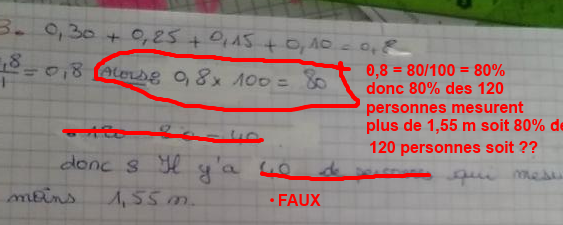 3. 0,30 + 0,25 + 0,15 + 0,10 = 0,8
0,8/1 = 0,8 ALORS 0,8 x 100 = 80
0,8 = 80/100 = 80%
donc 80% des 120
personnes mesurent
plus de 1,55 m soit 80% de
120 personnes soit ??
120 - 80 = 40
donc : Il y'a 40 de personnes qui mesu
moins 1,55 m.
• FAUX